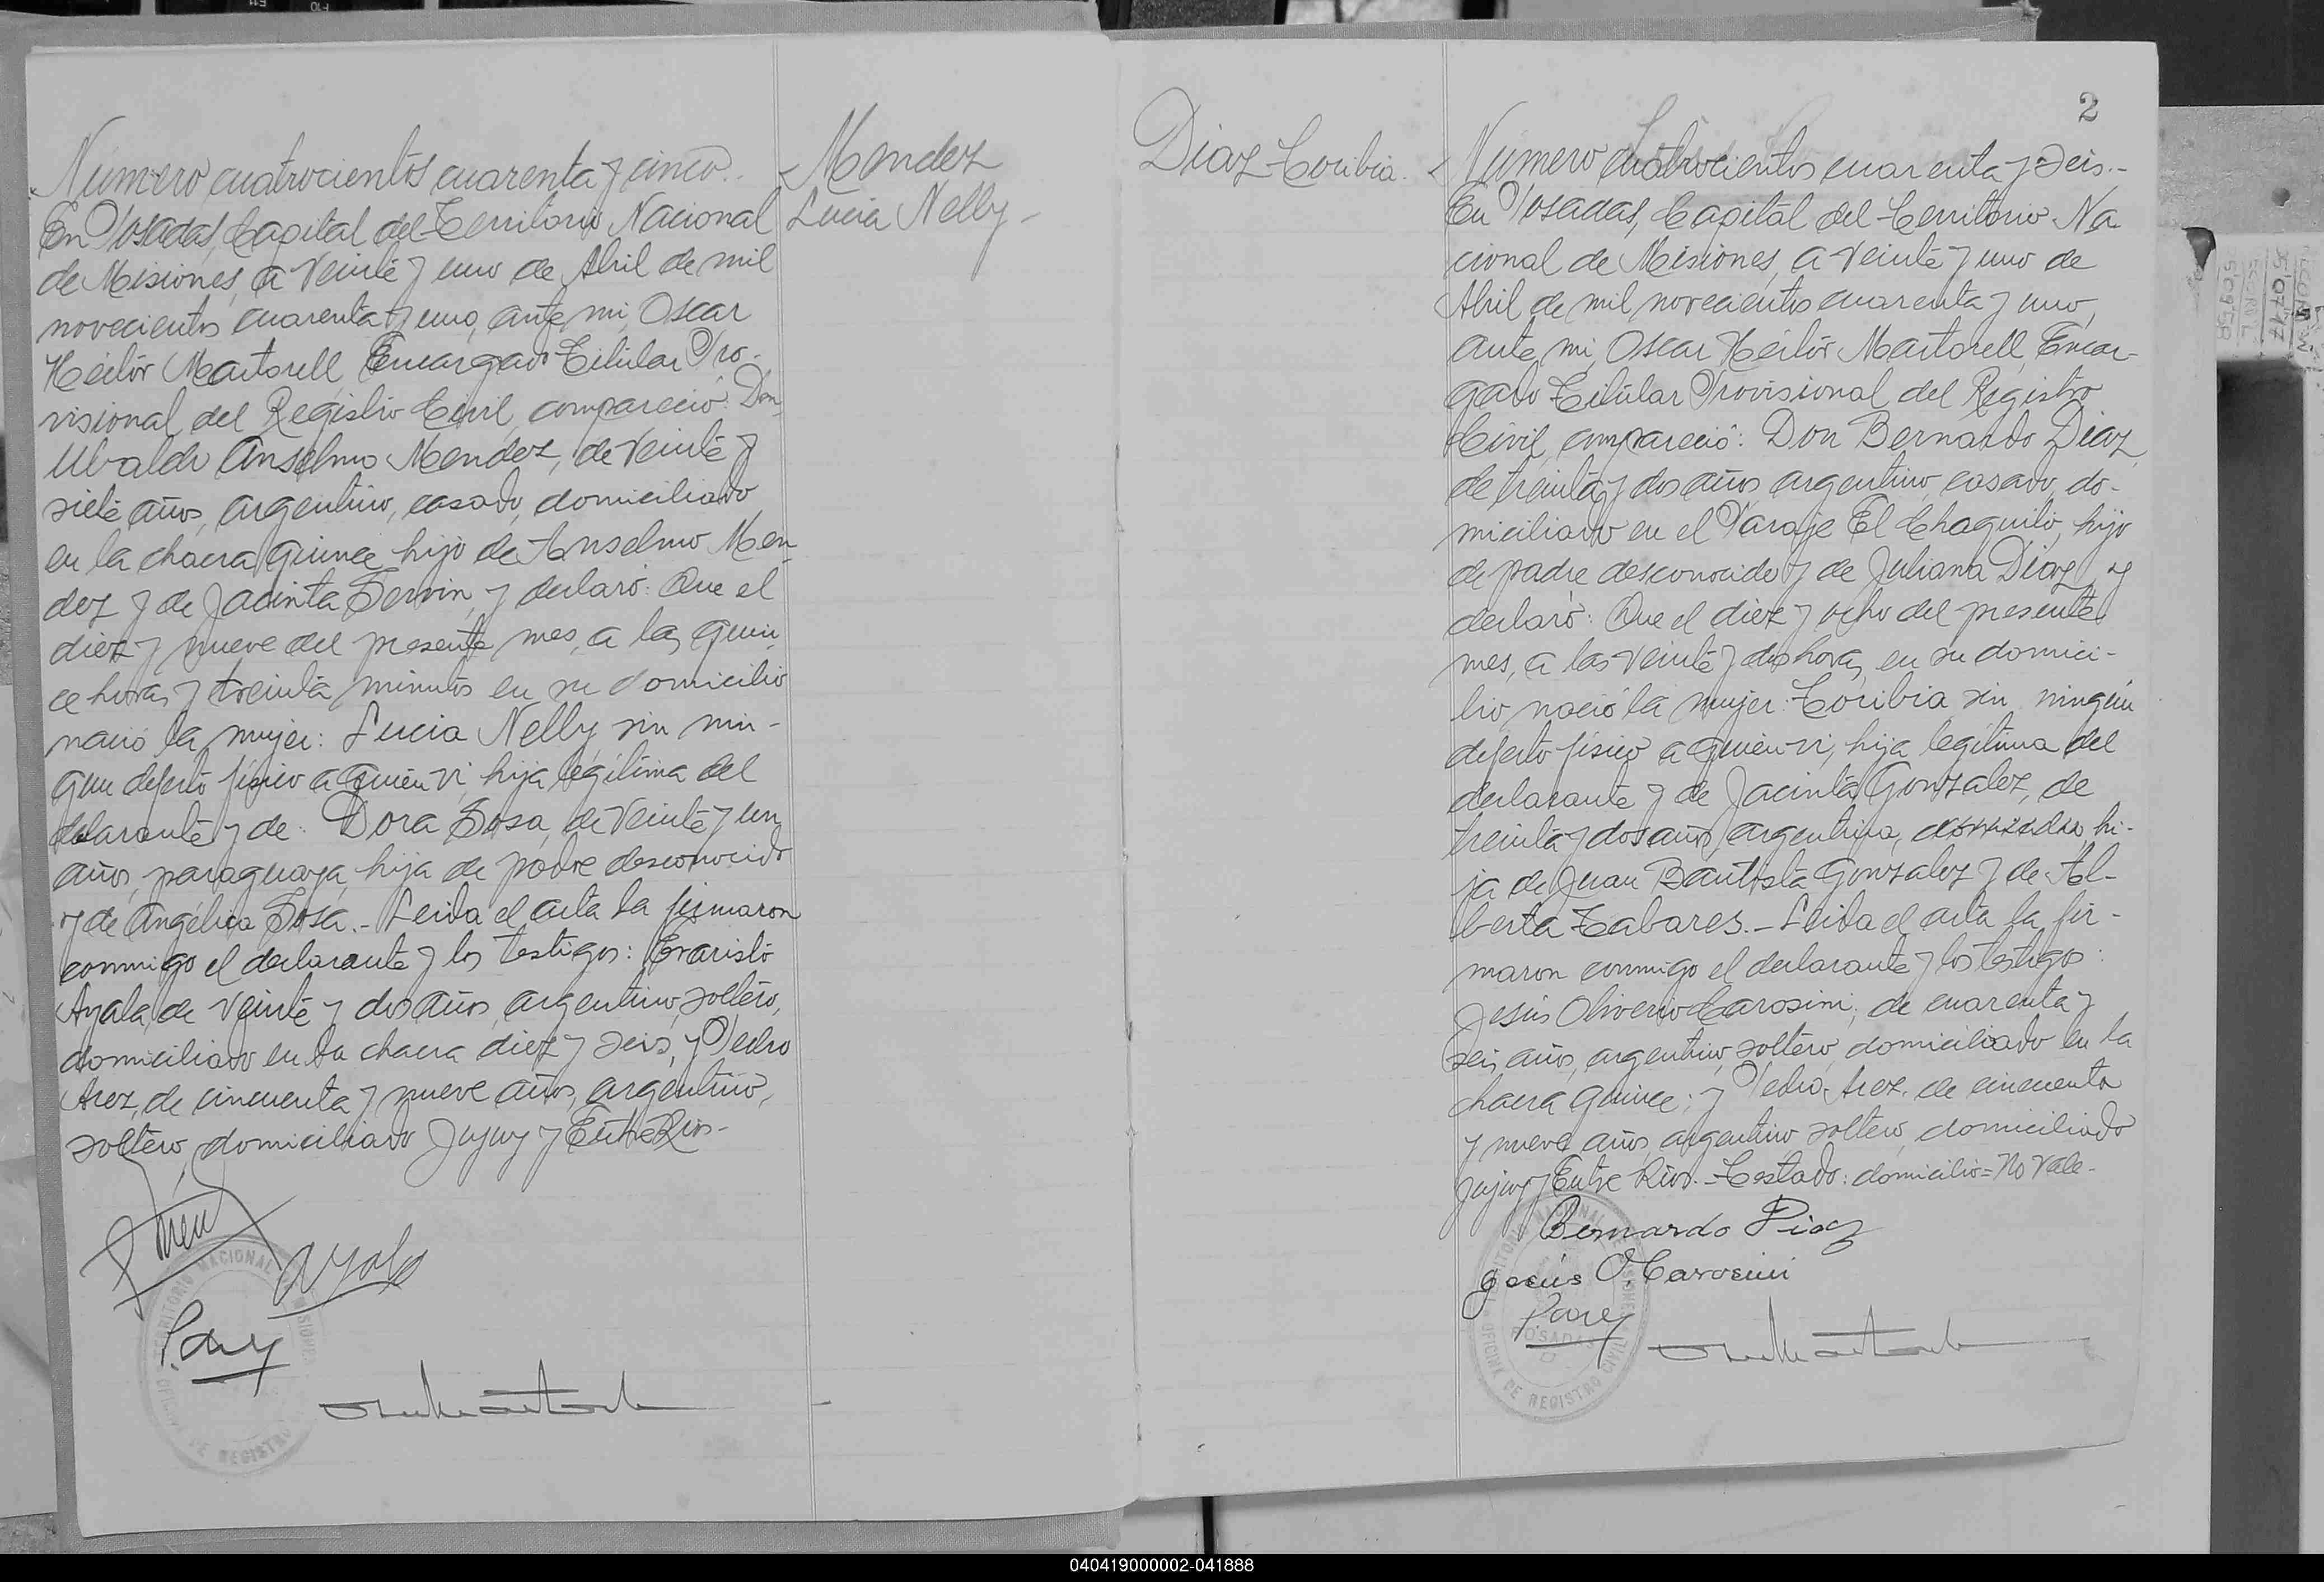 Mendez
Lucia Nelly-
Número cuatrocientos cuarenta y cinco.-
En Posadas, Capital del Territorio Nacional
de Misiones, a veinte y uno de Abril de mil
novecientos cuarenta y uno, ante mi, Oscar
Héctor Martorell, Encargado Titular Pro-
visional del Registro Civil, compareció: Don
Ubaldo Anselmo Mendez, de veinte y
siete años, argentino, casado, domiciliado
en la chacra quince, hijo de Anselmo Men-
dez y de Jacinta Servin, y declaró: Que el
diez y nueve del presente mes, a las quin-
ce horas y treinta minutos en su domicilio
nació la mujer: Lucia Nelly, sin nin-
gun defecto físico a quien vi, hija legítima del
declarante y de: Dora Sosa, de veinte y un
años, paraguaya, hija de padre desconocido
y de Angélica Sosa.- Leida el acta la firmaron
conmigo el declarante y los testigos: Evaristo
Ayala, de veinte y dos años, argentino, soltero,
domiciliado en la chacra diez y seis, y Pedro
Arez, de cincuenta y nueve años, argentino,
soltero, domiciliado Jujuy y Entre Rios-
Ayala
P. Arez
TERRITORIO NACIONAL DE MISIONES
OFICINA DE REGISTRO
2
Diaz Toribia.
Número cuatrocientos cuarenta y seis.-
En Posadas, Capital del Territorio Na
cional de Misiones, a veinte y uno de
Abril de mil novecientos cuarenta y uno,
ante mi, Oscar Héctor Martorell, Encar-
gado Titular Provisional del Registro
Civil, compareció: Don Bernardo Diaz,
de treinta y dos años, argentino, casado, do-
miciliado en el Paraje El Chaquito, hijo
de padre desconocido y de Juliana Diaz, y
declaró: Que el diez y ocho del presente
mes, a las veinte y dos horas, en su domici-
lio nació la mujer: Toribia sin ningún
defecto físico a quien vi, hija legítima del
declarante y de Jacinta Gonzalez, de
treinta y dos años, argentina, hi-
ja de Juan Bautista Gonzalez y de Al-
berta Tabares.- Leida el acta la fir-
maron conmigo el declarante y los testigos:
Jesús Oliverio Carosini, de cuarenta y
seis años, argentino, soltero, domiciliado en la
chacra quince; y Pedro Arez, de cincuenta
y nueve años, argentino, soltero, domiciliado
Jujuy y Entre Rios.- Testado: domicilio=No vale-
Bernardo Diaz
Jesús O. Carosini
P. Arez
TERRITORIO NACIONAL DE MISIONES
POSADAS
OFICINA DE REGISTRO CIVIL
040419000002-041888